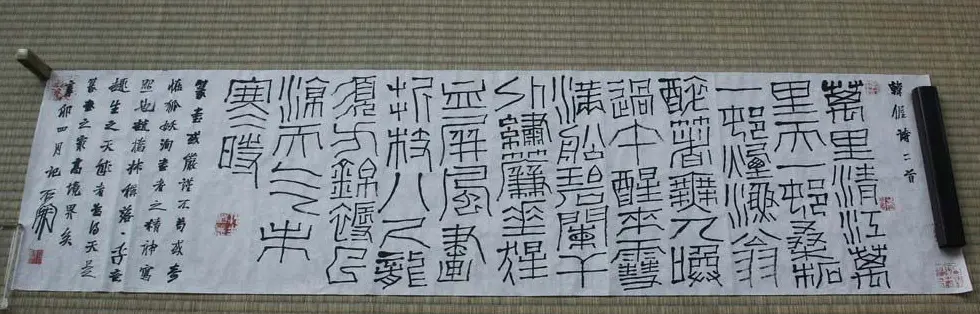 韓偓詩二首
萬里清江萬
里天一邨桑柘
一邨煙漁翁
醉著無人喚
過午醒來雪
滿船碧闌干
外繡簾垂猩
血屏風畫
折枝八尺龍
須方錦褥已
涼天气未
寒時
篆書或嚴謹不苟或奇
妖洵書者之精神寫
照也
趣生之天然者天是
篆書之最高境界矣
辛卯四月記石開